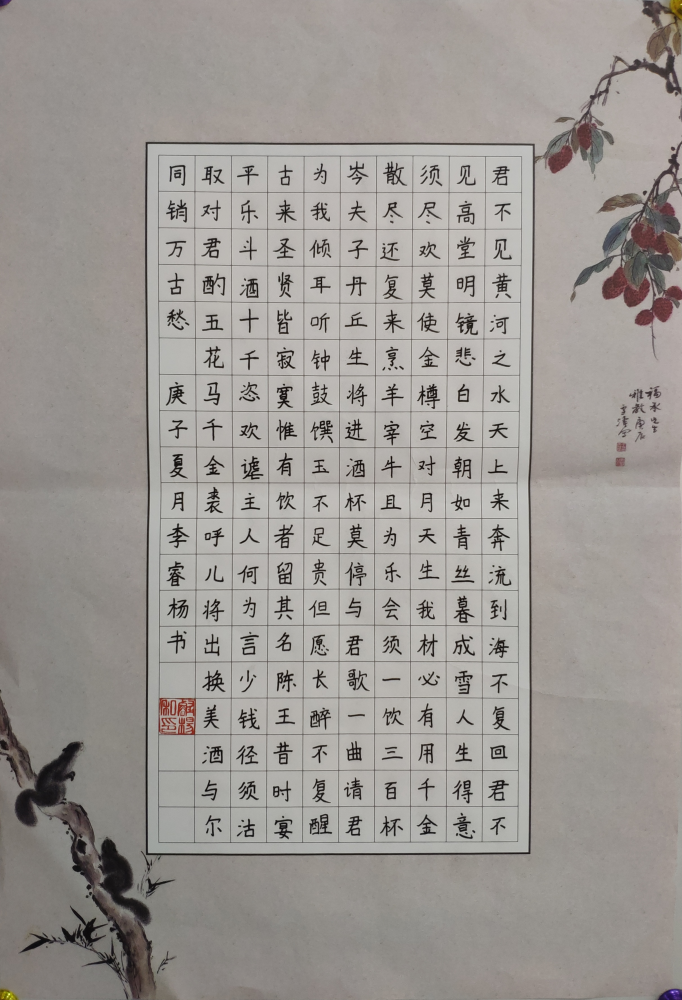 君不见黄河之水天上来奔流到海不复回君不
见高堂明镜悲白发朝如青丝暮成雪人生得意
须尽欢莫使金樽空对月天生我材必有用千金
散尽还复来烹羊宰牛且为乐会须一饮三百杯
岑夫子丹丘生将进酒杯莫停与君歌一曲请君
为我倾耳听钟鼓馔玉不足贵但愿长醉不复醒
古来圣贤皆寂寞惟有饮者留其名陈王昔时宴
平乐斗酒十千恣欢谑主人何为言少钱径须沽
取对君酌五花马千金裘呼儿将出换美酒与尔
同销万古愁 庚子夏月李睿杨书